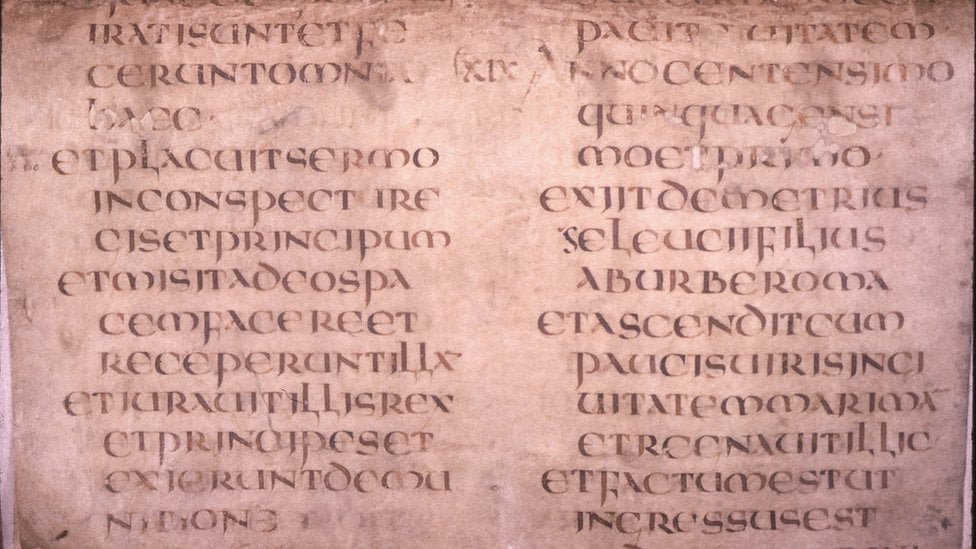 IRATISUNTETFE
CERUNTOMNIA
HAEC
ETPLACUITSERMO
INCONSPECTURE
GISETPRINCIPUM
ETMISITADEOSPA
CEMFACEREET
RECEPERUNTILLA
ETIURAUITILLISREX
ETPRINCIPESET
EXIERUNTDEMU
NITIONE
PAUIT CIUITATEM
LXIX ANNOCENTENSIMO
QUINQUAGENSI
MOETPRIMO
EXIITDEMETRIUS
SELEUCIIFILIUS
ABURBEROMA
ETASCENDITCUM
PAUCISUIRISINCI
UITATEMMARIMA
ETREGNAUITILLIC
ETFACTUMESTUT
INGRESSUSEST